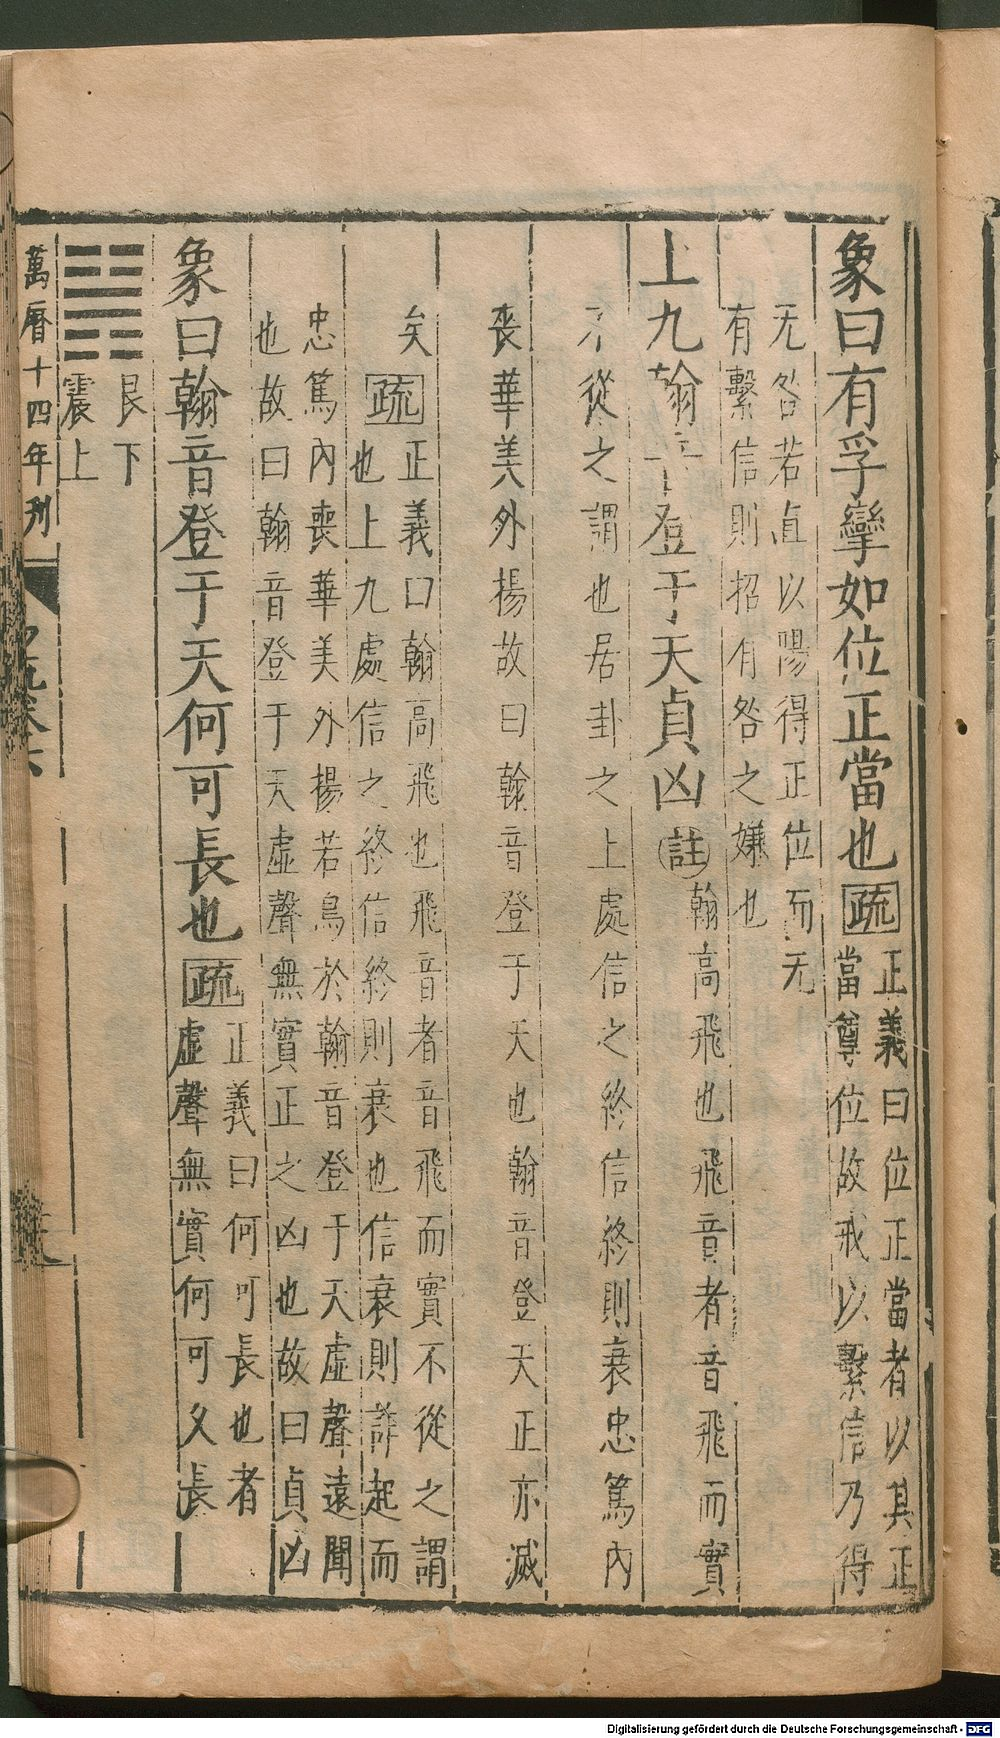 象曰有孚攣如位正當也疏
正義曰位正當者以其正
當尊位故戒以繫信乃得
无咎若直以陽得正位而无
有繫信則招有咎之嫌也
上九翰音登于天貞凶註
翰高飛也飛音者音飛而實
不從之謂也居卦之上處信之終信終則衰忠篤內
喪華美外揚故曰翰音登于天也翰音登天正亦滅
矣
疏
正義曰翰高飛也飛音者音飛而實不從之謂
也上九處信之終信終則衰也信衰則詐起而
忠篤內喪華美外揚若鳥於翰音登于天虛聲遠聞
也故曰翰音登于天虛聲無實正之凶也故曰貞凶
象曰翰音登于天何可長也疏
正義曰何可長也者
虛聲無實何可久長
䷽
艮下
震上
萬曆十四年刊
易疏卷六
Digitalisierung gefördert durch die Deutsche Forschungsgemeinschaft - DFG